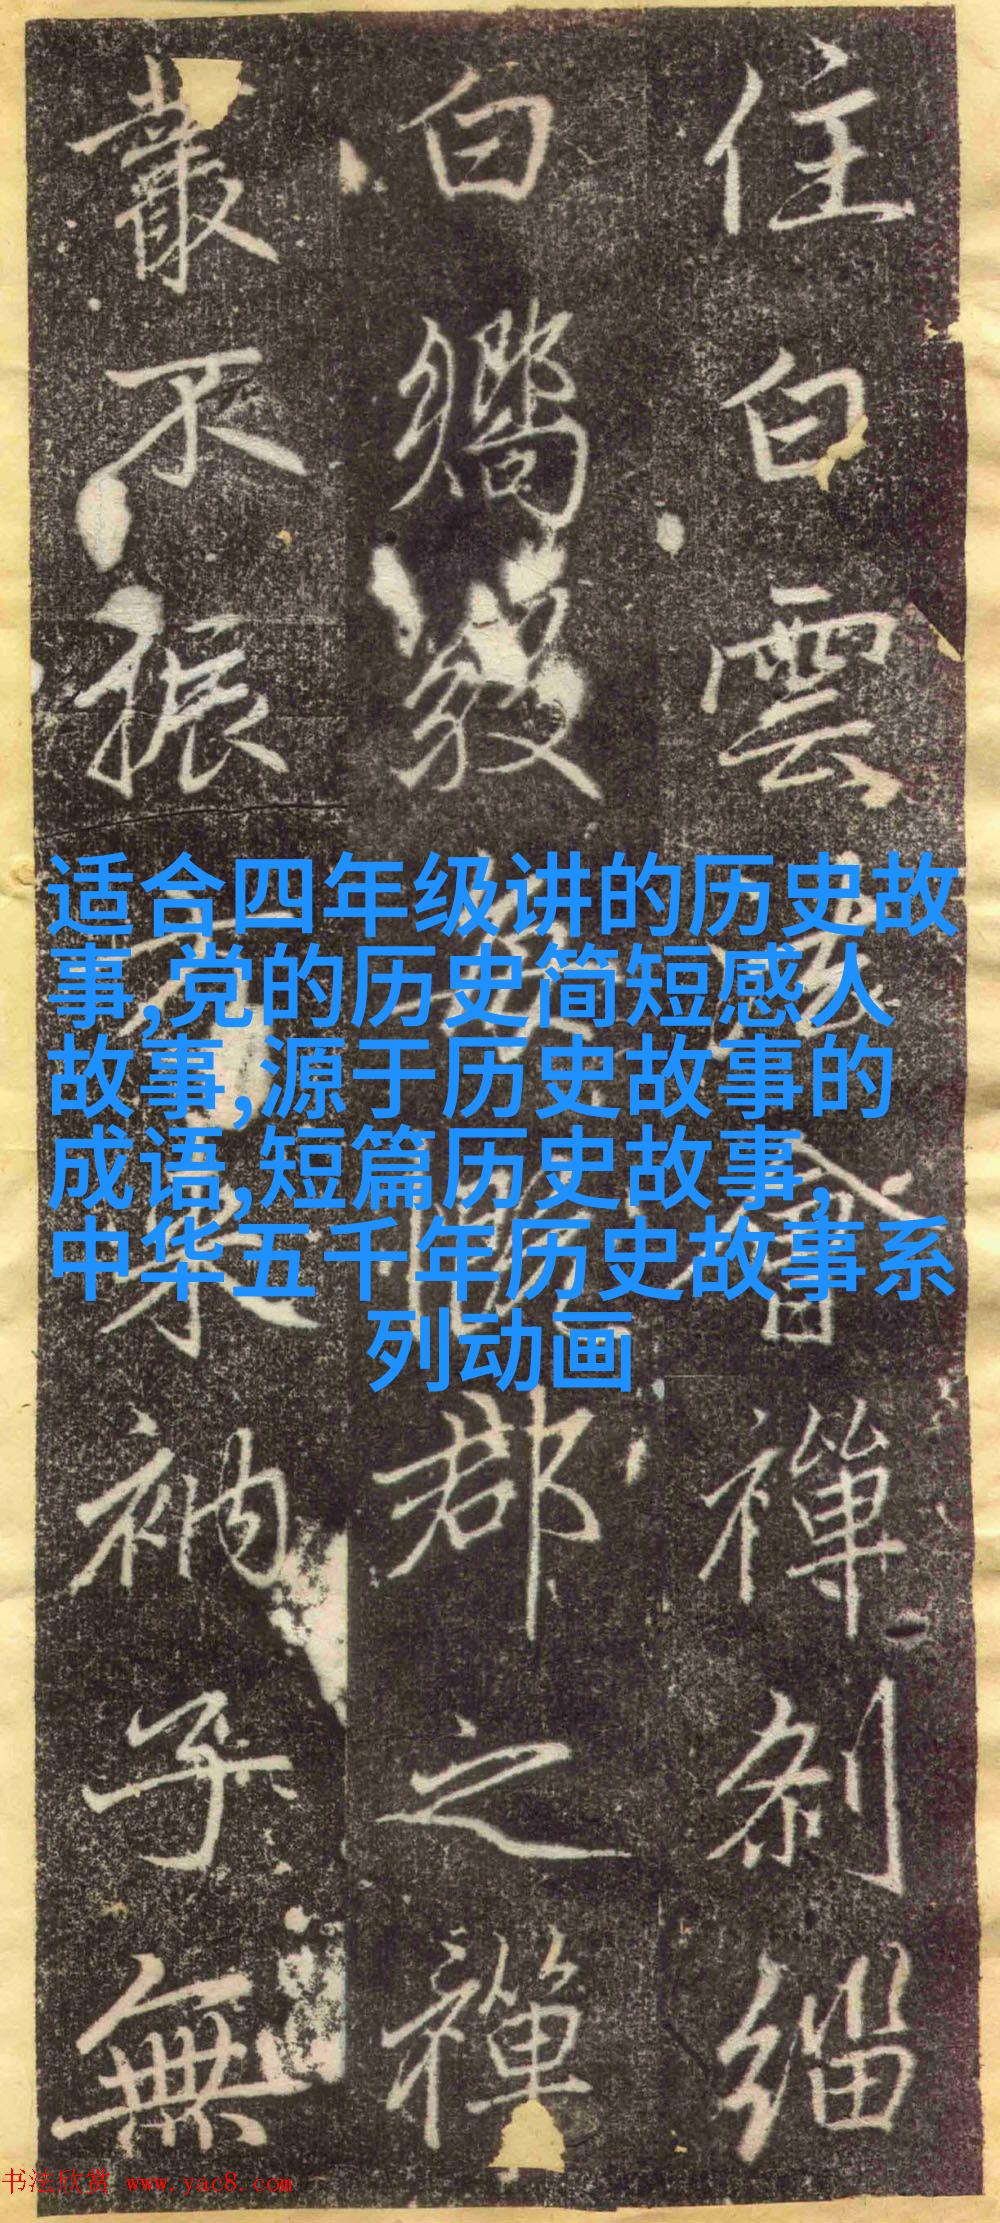 住白雲
禪刹緇
白
郡之禪
叢不振
衲子無
适合四年级讲的历史故
事,党的历史简短感人
故事,源于历史故事的
成语,短篇历史故事,
中华五千年历史故事系
列动画
书法欣赏 www.yac8.com